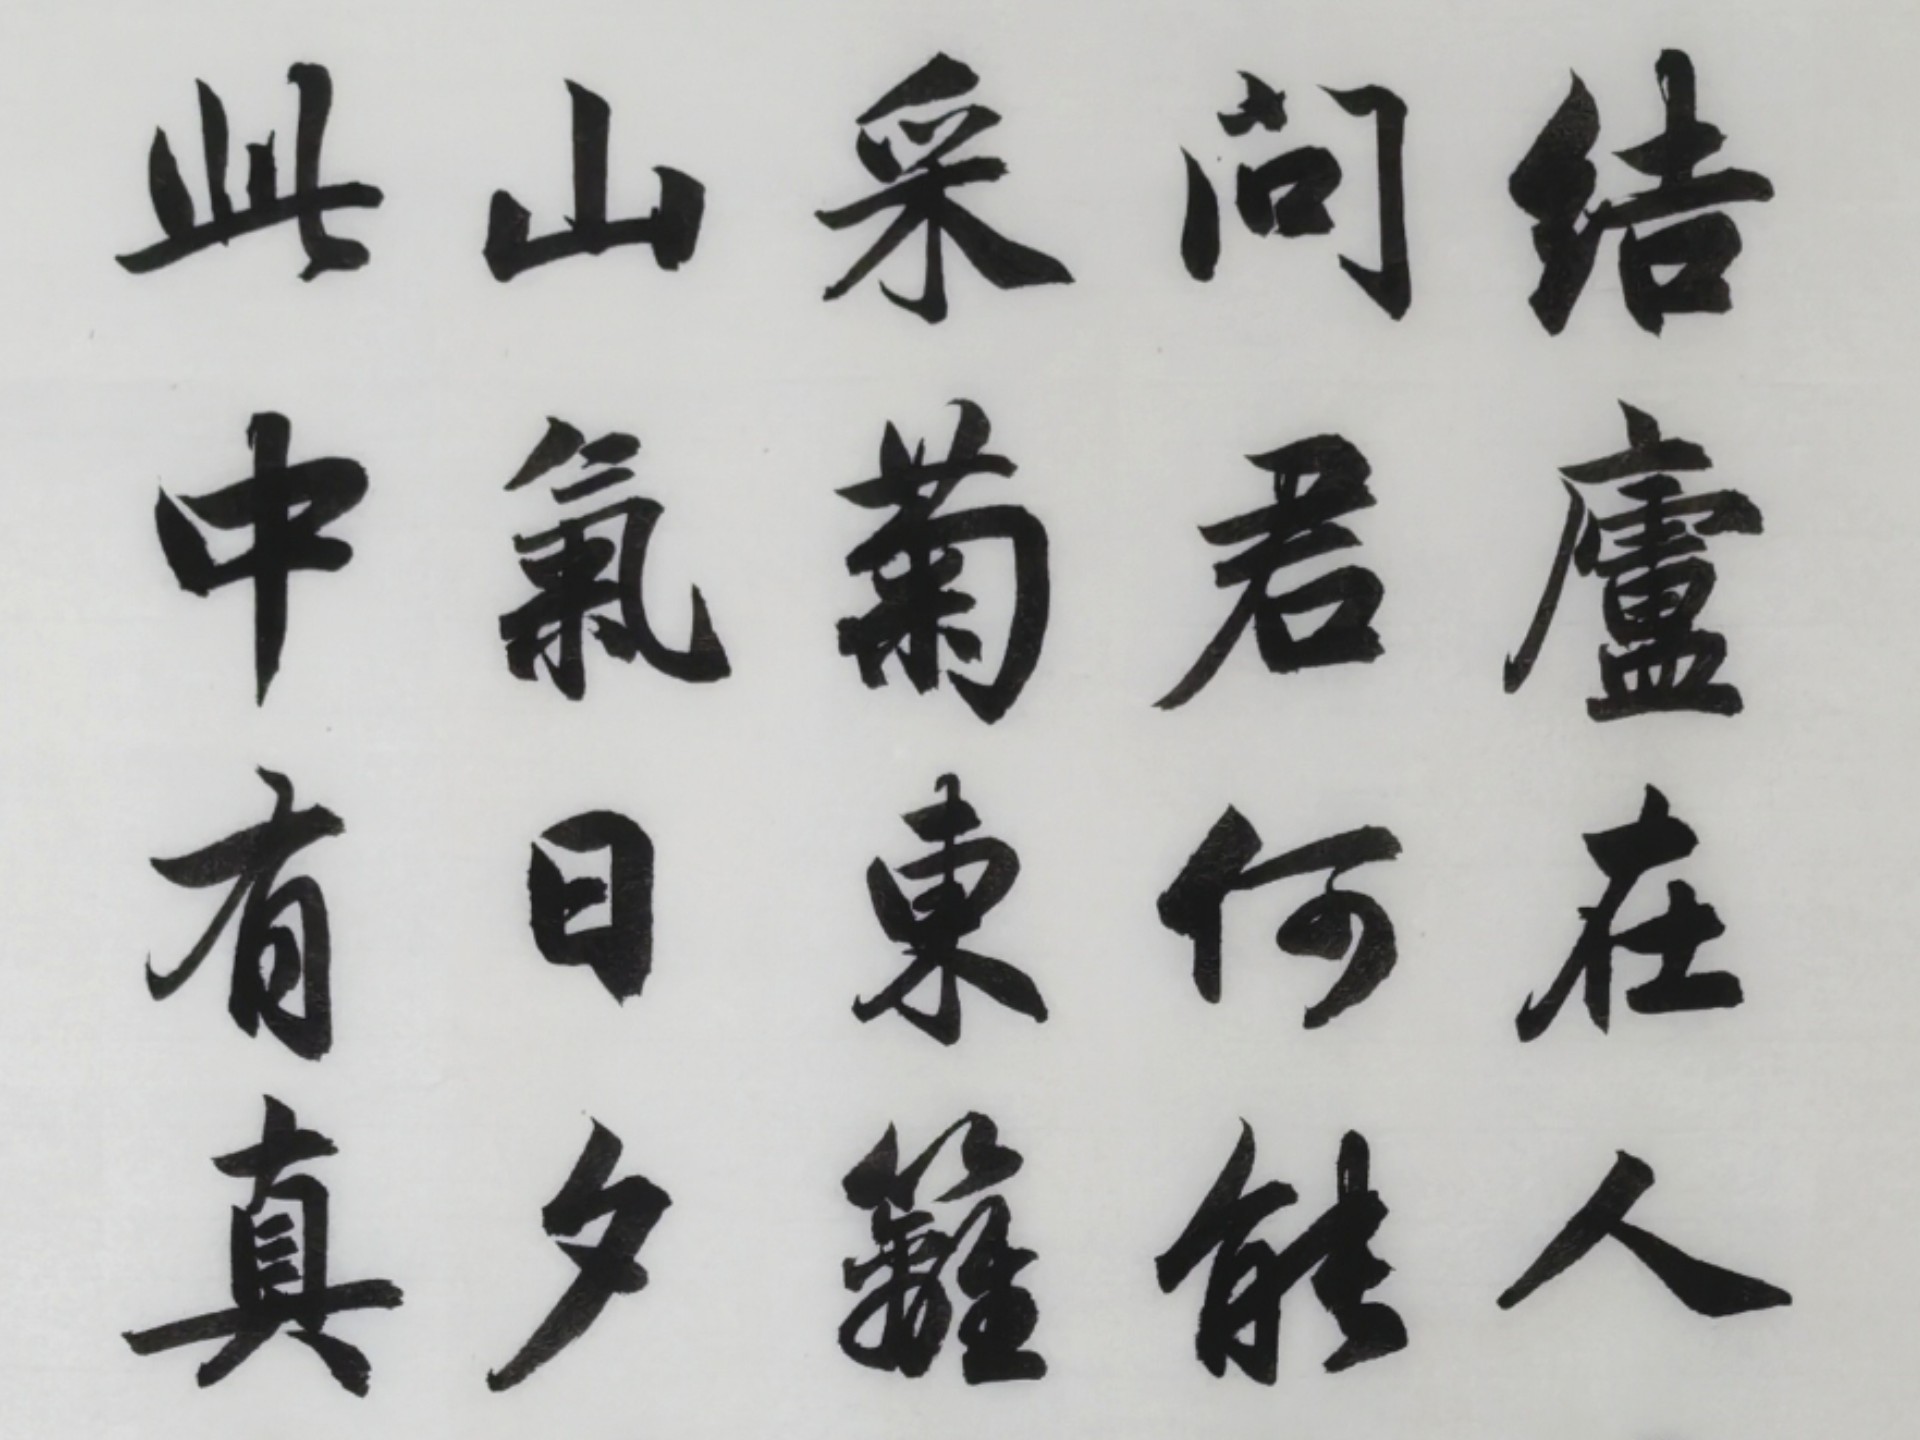 结廬在人
问君何能
采菊東籬
山氣日夕
此中有真